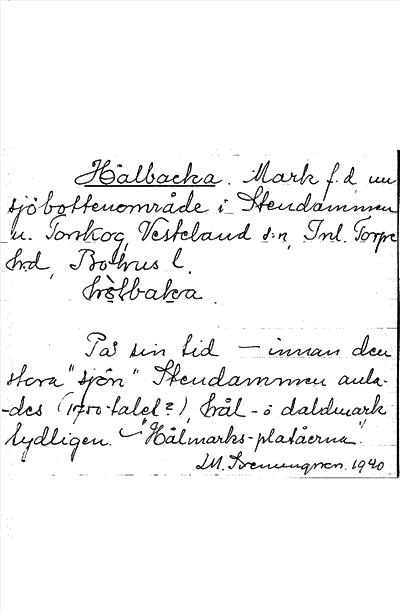 Hålbacka. Mark f.d. nu
sjöbottenområde i Stendammen
u. Torskog, Vesteland s:n, Inl. Torpe
hrd, Bohus l.
hålbaka.
På sin tid – innan den
stora "sjön" Stendammen anla-
-des (1700-talet?), hål- o daldmark
tydligen. – "Hålmarks-platåerna".
1940